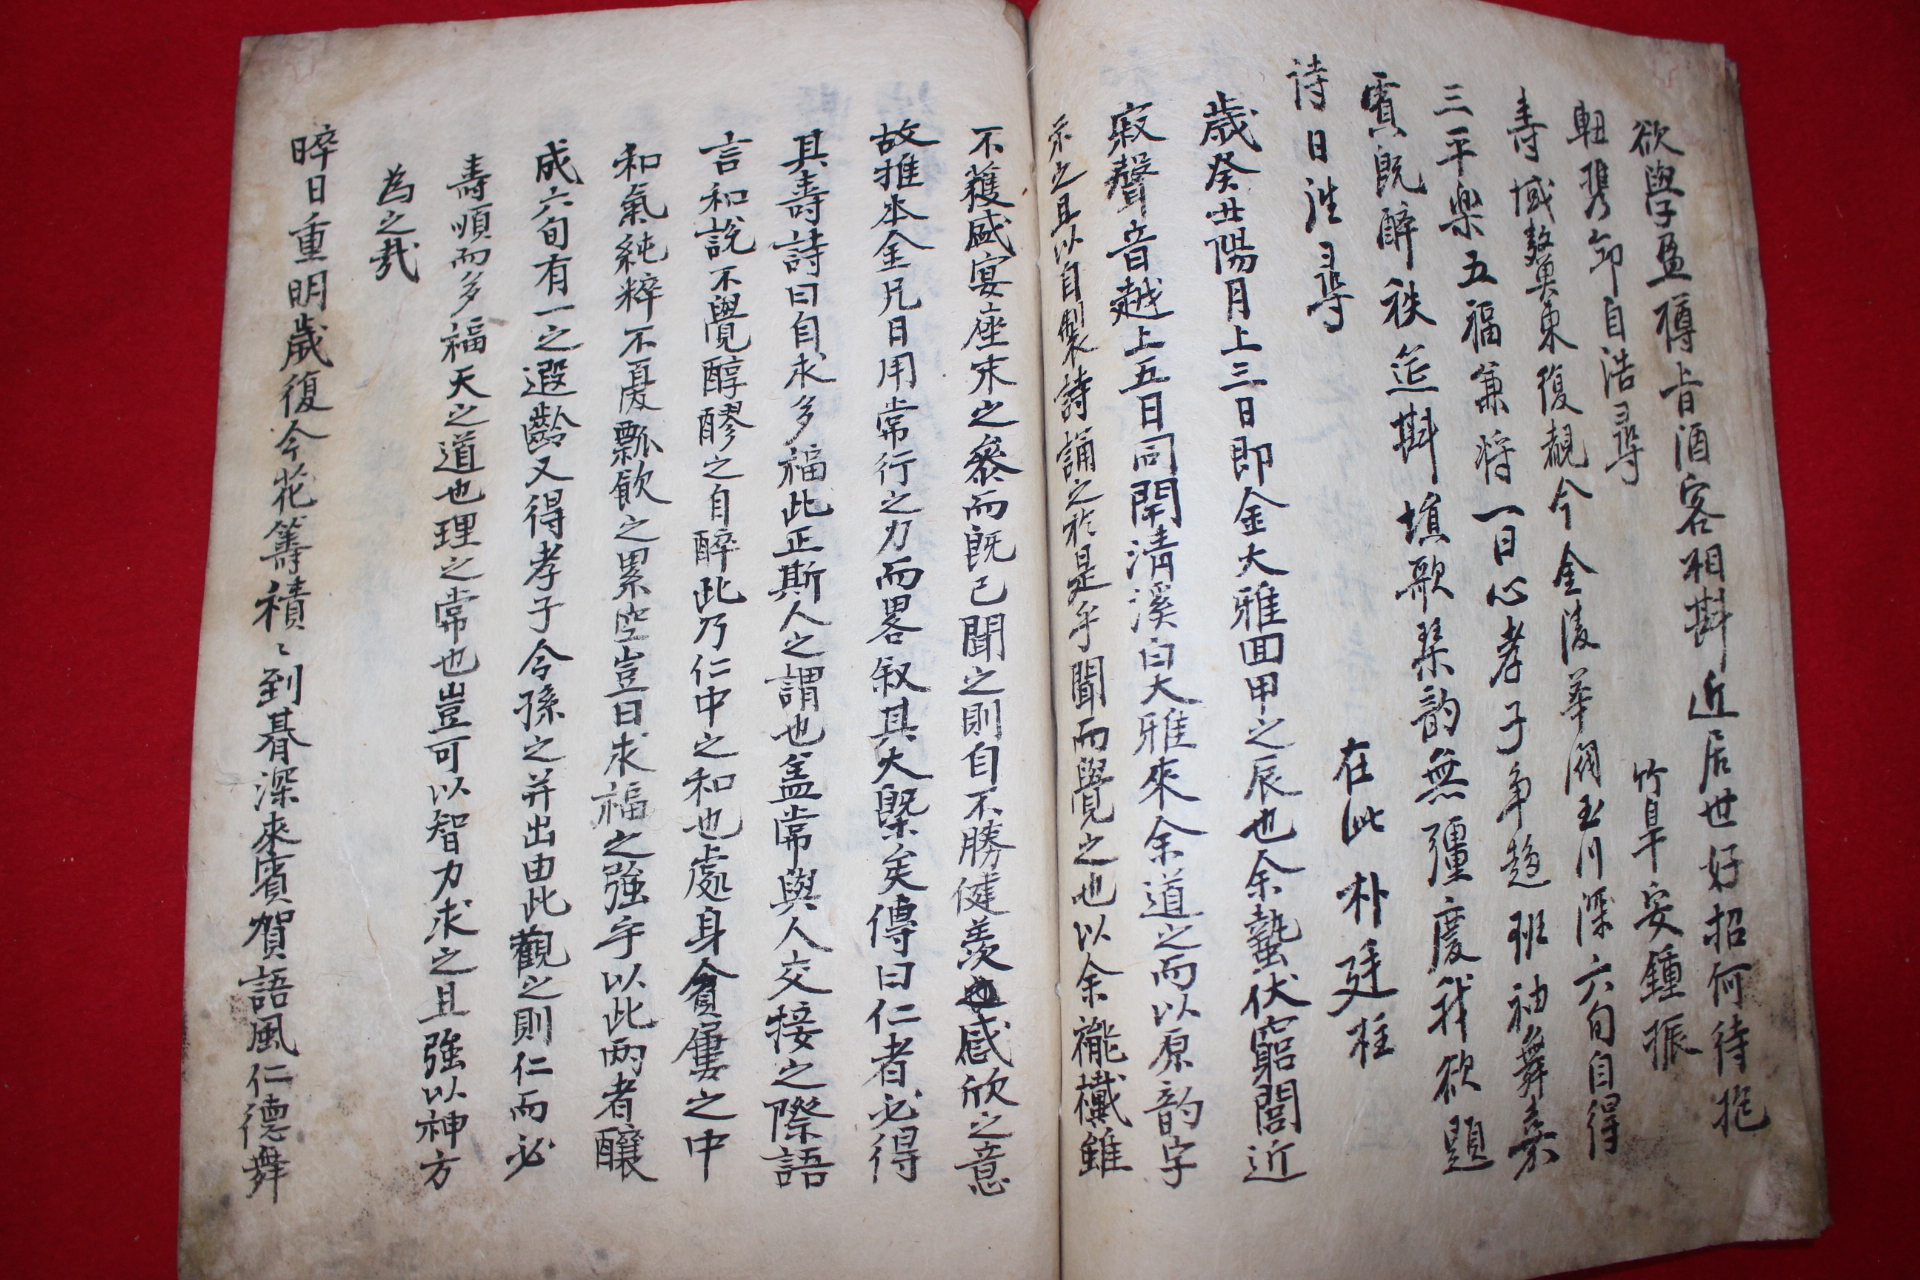 欲學盈樽旨酒客相斟近居世好招何待抱
軔琴節自浩尋
竹阜安鍾振
壽域鰲奠東復覩今金陵華閥玉川深六旬自得
三平樂五福兼將一日心孝子爭趨班袖舞嘉
賓既醉秩筵斟塤歌琴韵無彊慶我欲題
詩日往尋
在此朴廷柱
歲癸丑陽月上三日即金大雅回甲之辰也余蟄伏窮閭近
寂聲音越上五日同閈淸溪白大雅來余道之而以原韵字
示之且以自製詩誦之於是乎聞而覺之也以余襬襳雖
不獲盛宴座末之叅而既已聞之則自不勝健羨感欣之意
故推本金兄日用常行之力而畧叙其大槩矣傳曰仁者必得
其壽詩曰自求多福此正斯人之謂也盖常與人交接之際語
言和說不覺醇醪之自醉此乃仁中之和也處身貪窶之中
和氣純粹不憂瓢飮之累空豈曰求福之強乎以此兩者釀
成六旬有一之遐齡又得孝子令孫之并出由此觀之則仁而必
壽順而多福天之道也理之常也豈可以智力求之且強以神方
為之哉
晬日重明歲復今花籌積〻到碁深來賓賀語風仁德舞